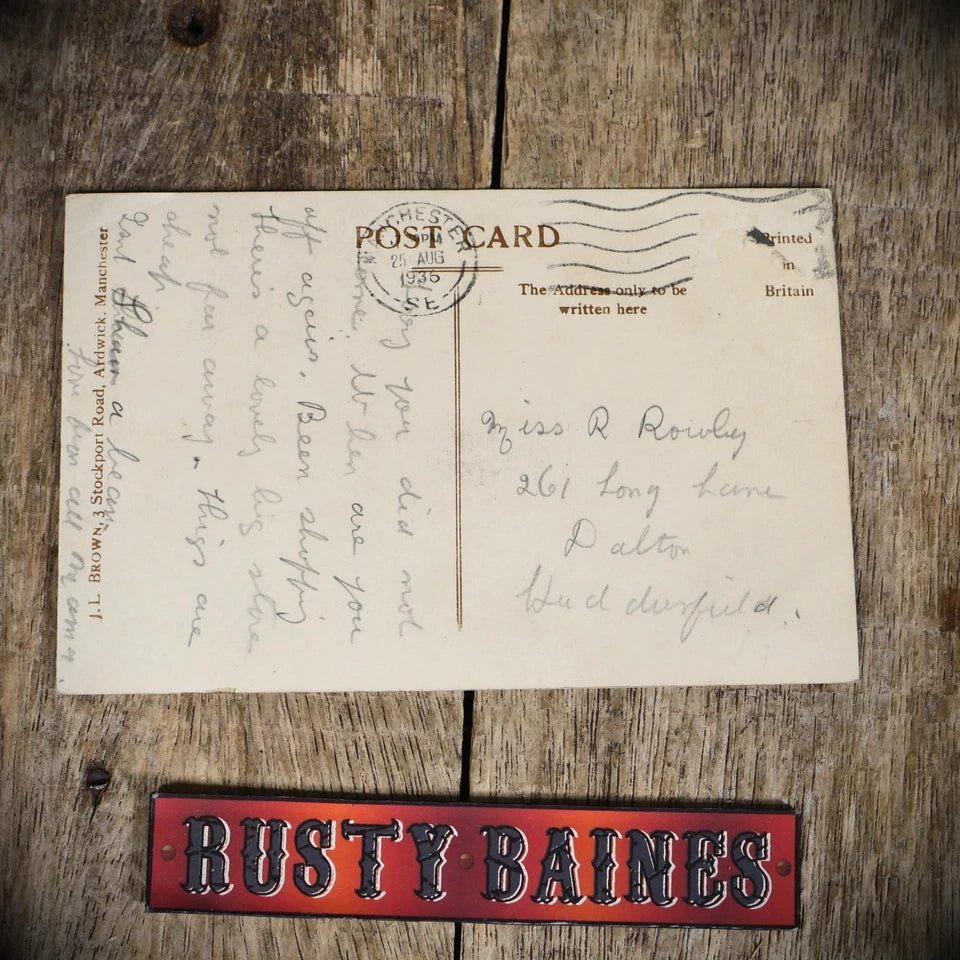 POST CARD
CHESTER
PM
25 AUG
1936
S E
The Address only to be
written here
Printed
in
Britain
you did not
come. When are you
off again. Been shopping
There is a lovely big store
not far away. Things are
cheap
a
Love from all
J.L. BROWN, 3 Stockport Road, Ardwick, Manchester
Miss R Rowley
261 Long Lane
Dalton
Huddersfield.
RUSTY BAINES